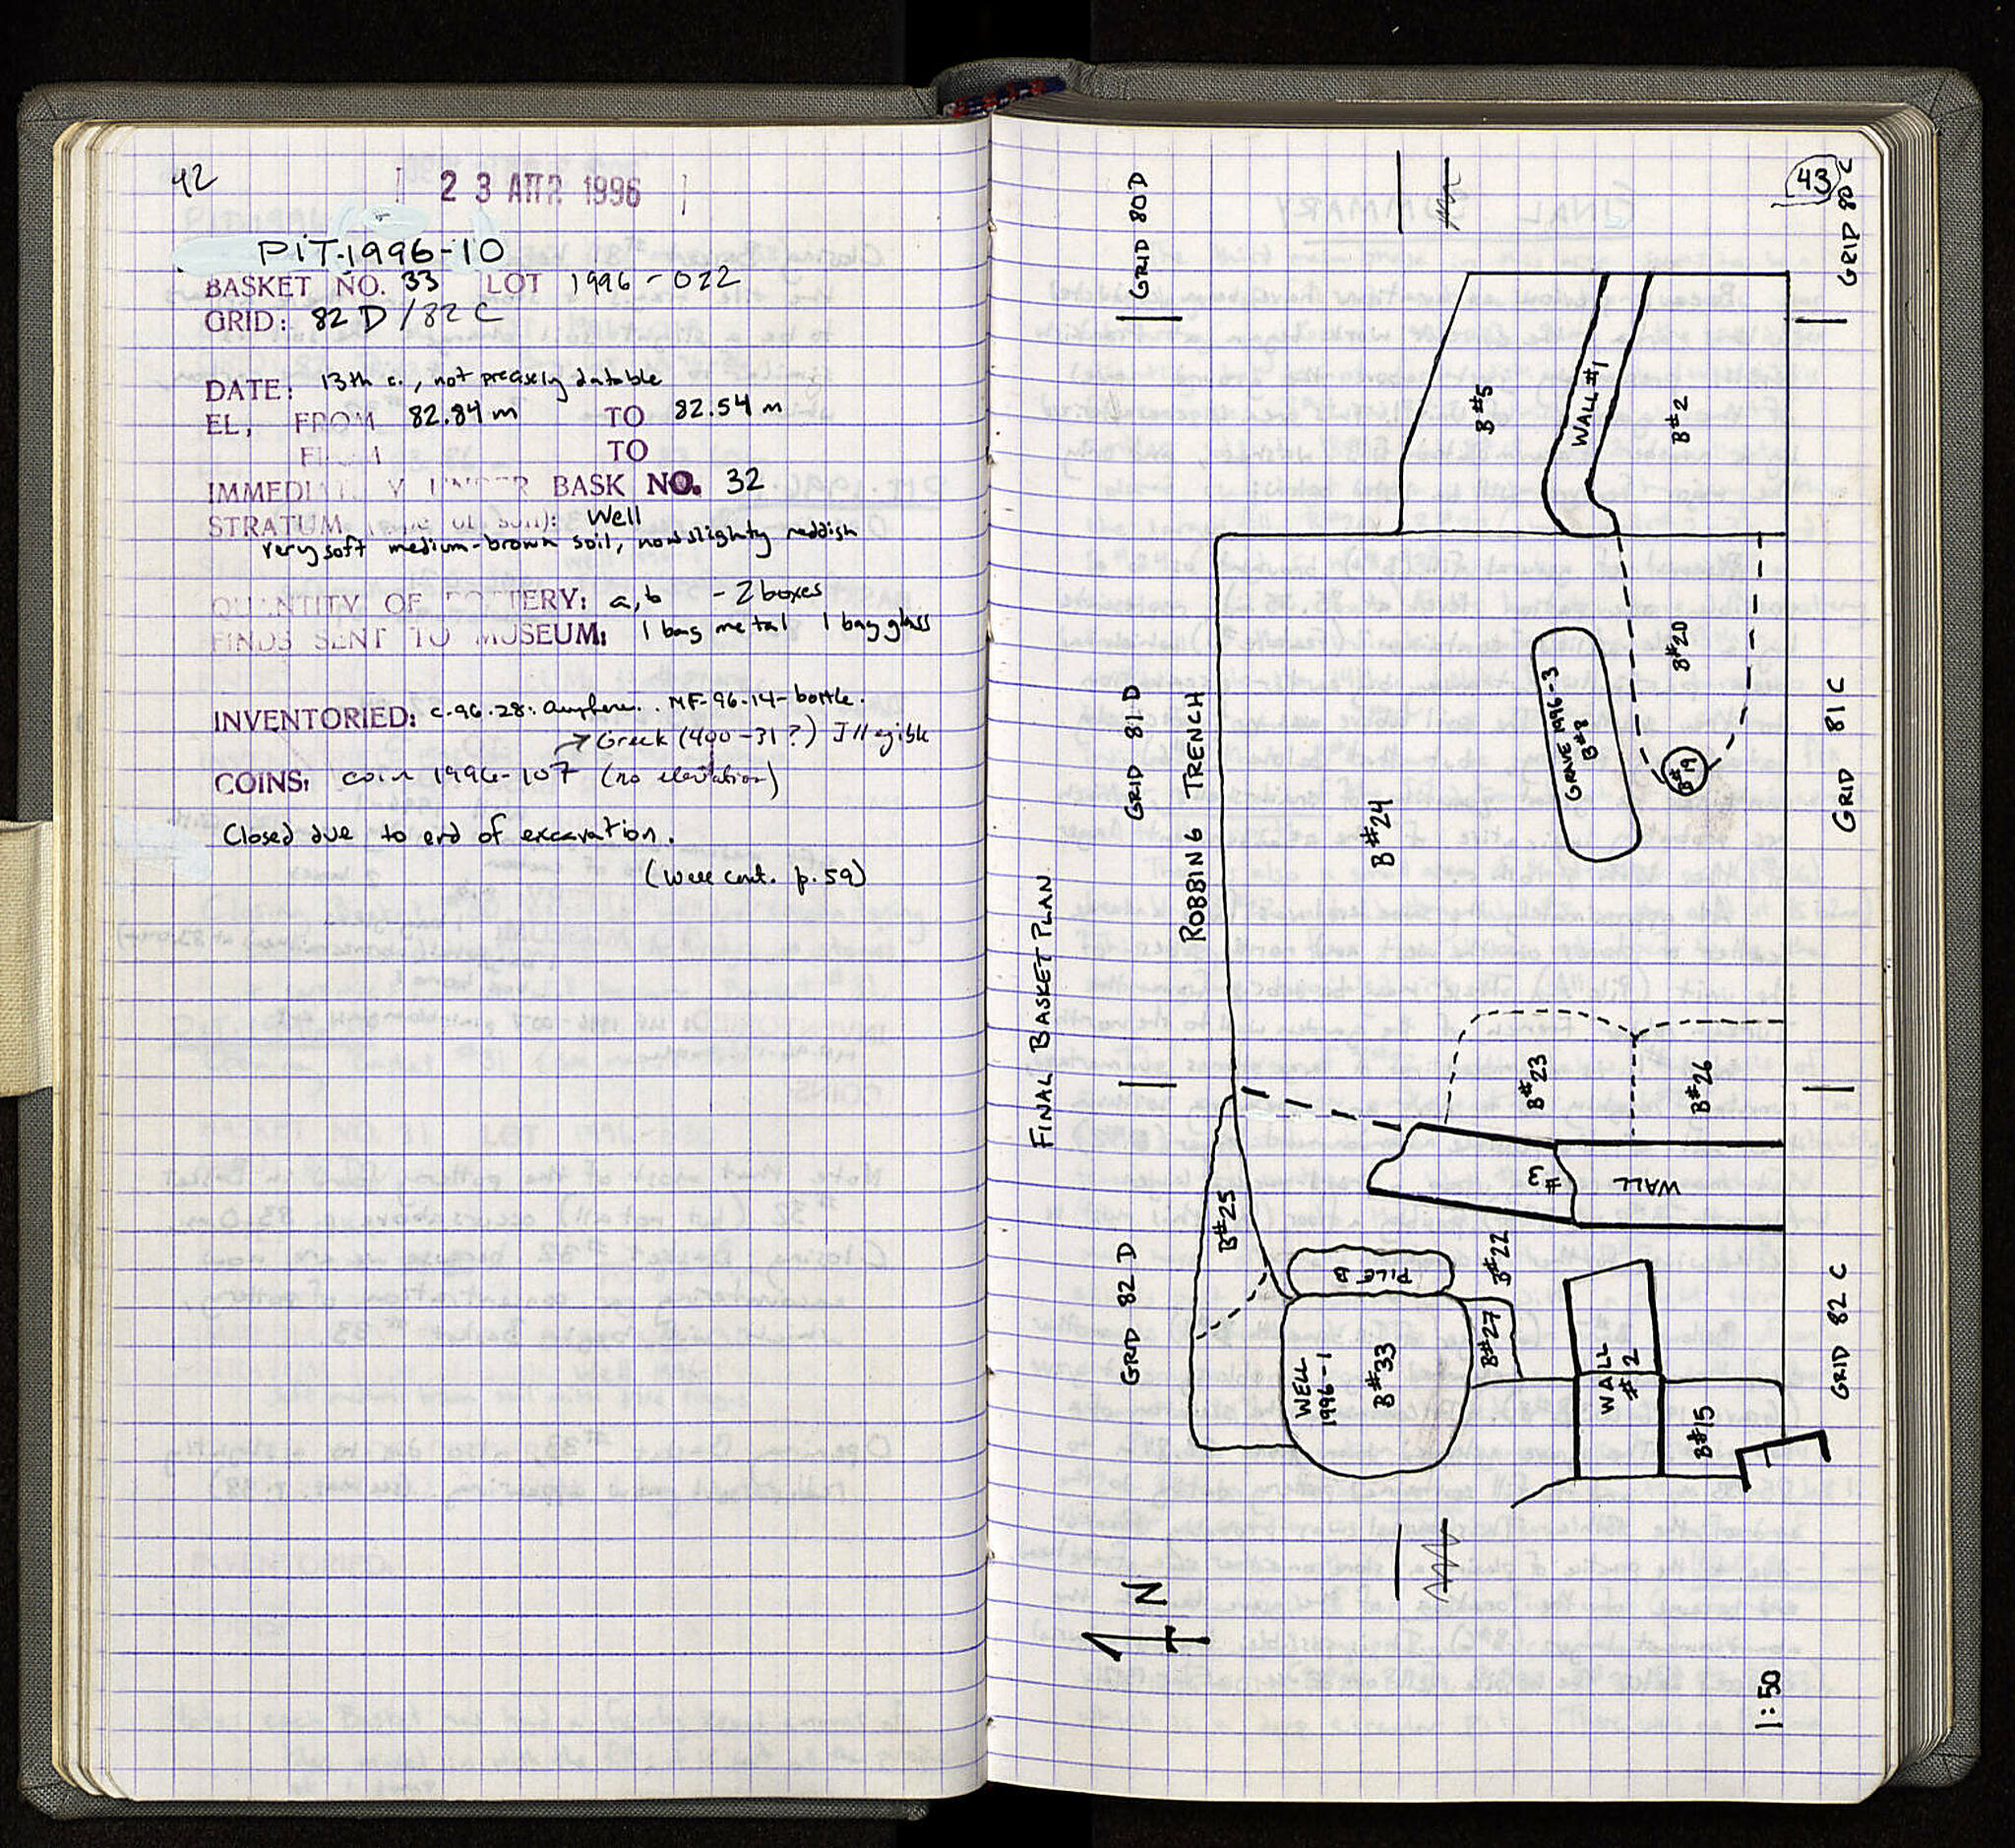 42
23 ΑΠΡ. 1996
PIT-1996-10
BASKET NO. 33 LOT 1996-022
GRID: 82 D / 82 C
DATE: 13th c., not precisely datable
EL, FROM 82.84 m TO 82.54 m
TO
IMMEDIAT Y UNDER BASK NO. 32
STRATUM (TYPE OF SOIL): Well
very soft medium-brown soil, now slightly reddish
QUANTITY OF POTTERY: a, b - 2 boxes
FINDS SENT TO MUSEUM: 1 bag metal 1 bag glass
INVENTORIED: C.96.28: amphora. MF-96-14-bottle.
→ Greek (400-31?) Illegible
COINS: coin 1996-107 (no elevation)
Closed due to end of excavation.
(Well cont. p. 59)
43
FINAL BASKET PLAN
GRID 82 D
GRID 81 D
GRID 80 D
ROBBING TRENCH
B#25
PILE B
WELL 1996-1
B#33
B#27
B#22
WALL #2
B#15
WALL #3
B#23
B#26
B#24
GRAVE 1996-3
B#8
B#19
B#20
B#5
WALL #1
B#2
GRID 82 C
GRID 81 C
GRID 80 C
N
1:50